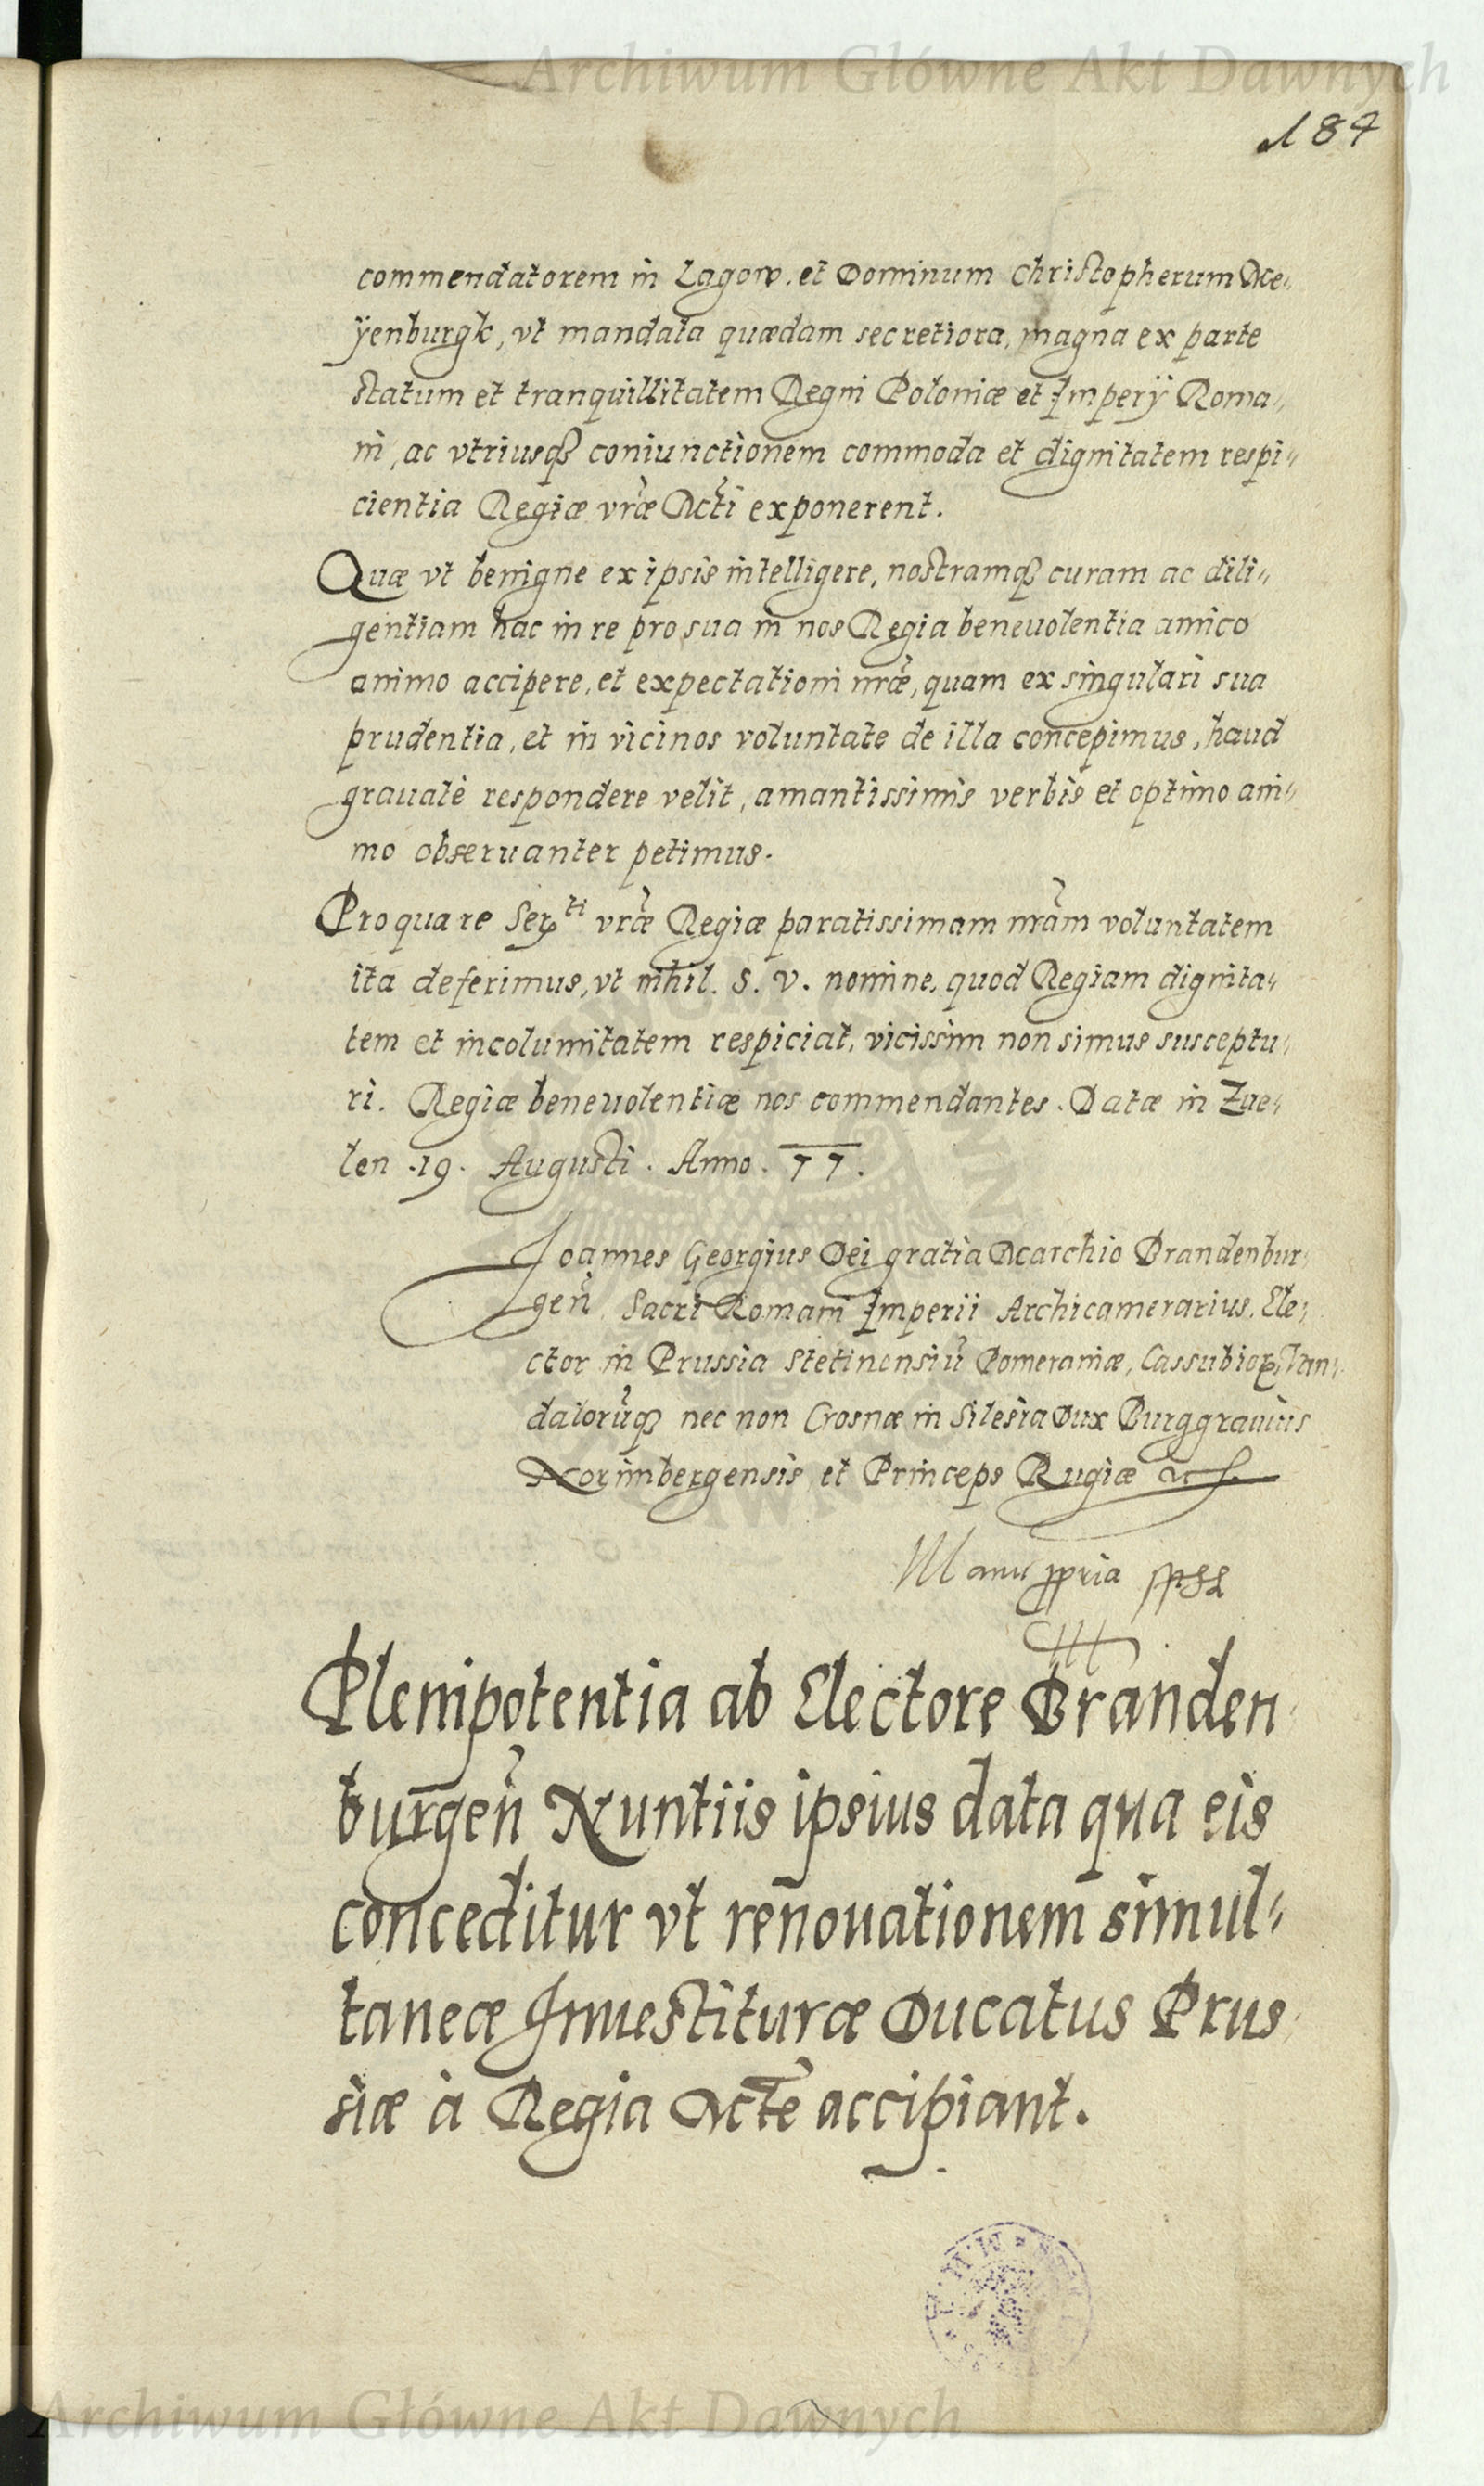 Archiwum Główne Akt Dawnych
184
commendatorem in Lagow. et Dominum Christopherum Me„
ÿenburgk, vt mandata quædam secretiora, magna ex parte
statum et tranquillitatem Regni Poloniæ et Imperÿ Roma„
ni, ac vtriusqꝫ coniunctionem commoda et dignitatem respi„
cientia Regiæ vræ Mcti exponerent.
Quæ vt benigne ex ipsis intelligere, nostramqꝫ curam ac dili„
gentiam hac in re pro sua in nos Regia beneuolentia amico
animo accipere, et expectationi nræ, quam ex singulari sua
prudentia, et in vicinos voluntate de illa concepimus, haud
grauatè respondere velit, amantissimis verbis et optimo ani„
mo obseruanter petimus.
Pro qua re Serti vræ Regiæ paratissimam nram voluntatem
ita deferimus, vt nihil. S. V. nomine, quod Regiam dignita„
tem et incolumitatem respiciat, vicissim non simus susceptu„
ri. Regiæ beneuolentiæ nos commendantes. Datæ in Zue„
len .19. Augusti. Anno. 77.
Joannes Georgius Dei gratia Marchio Brandenbur„
gen̄ Sacri Romani Imperii Archicamerarius, Ele„
ctor in Prussia Stetinensiū Pomeraniæ, Cassubioꝝ Van„
dalorūqꝫ nec non Crosnæ in Silesia Dux Burggrauius
Norimbergensis et Princeps Rugiæ etc.
Manu ppria sspst
Plenipotentia ab Electore Branden„
burgen̄ Nuntiis ipsius data qua eis
conceditur vt renouationem simul„
taneæ Inuestituræ Ducatus Prus„
siæ à Regia Mcte accipiant.
Archiwum Główne Akt Dawnych